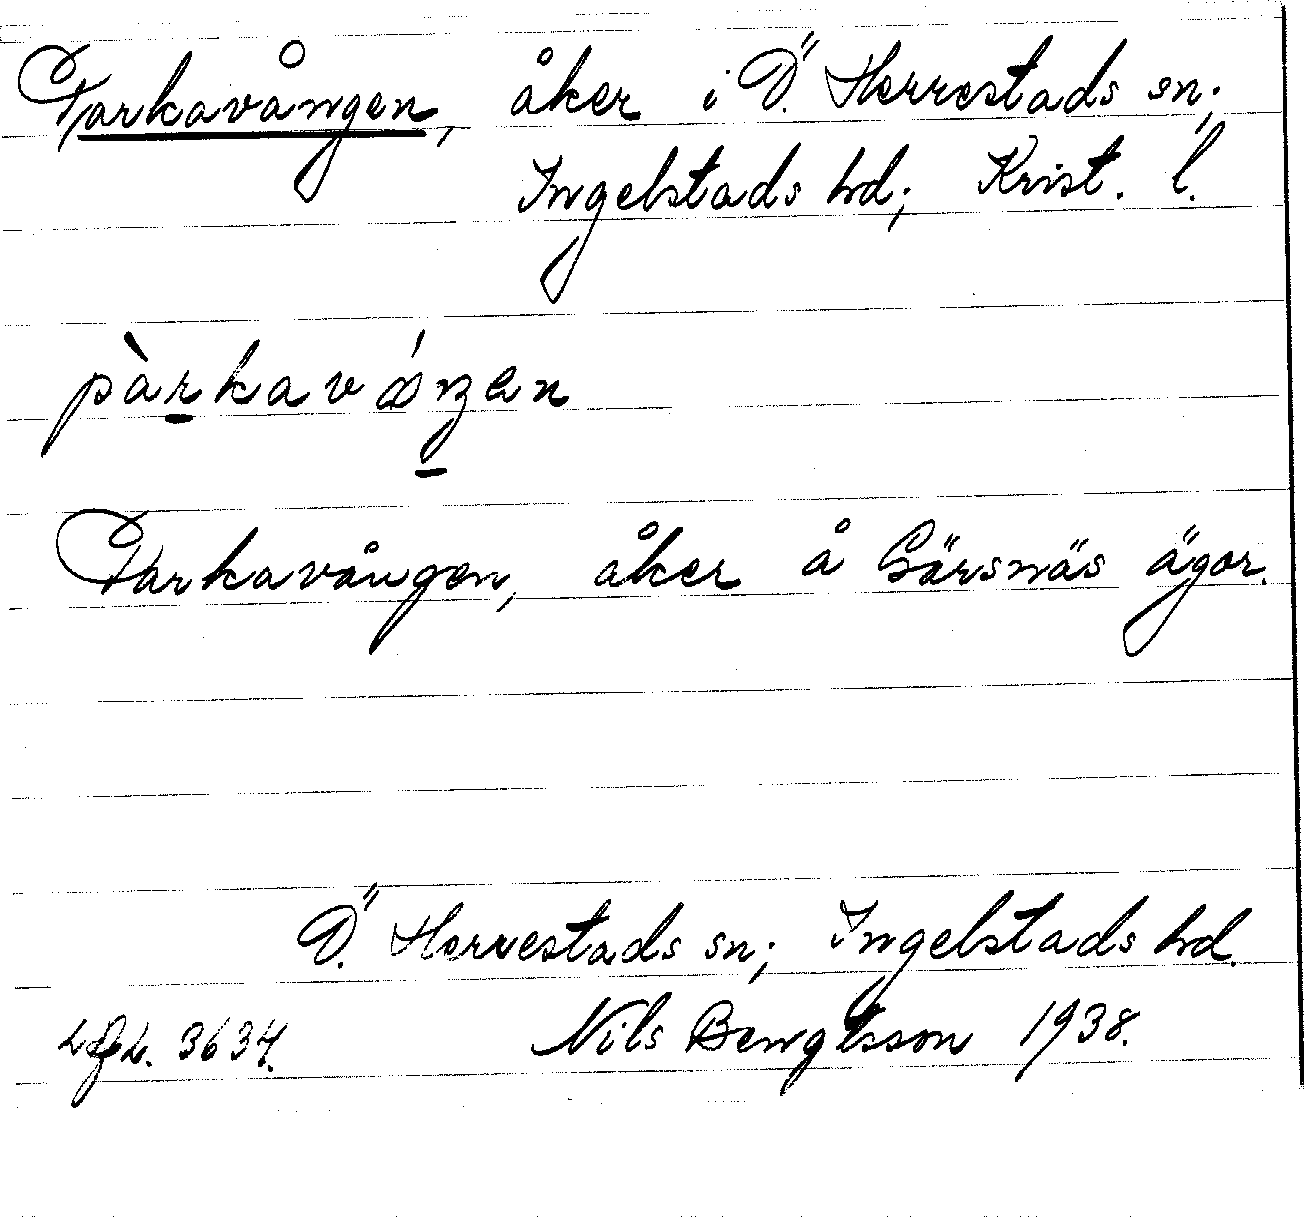 Parkavången, åker i Ö. Herrestads sn;
Ingelstads hd; Krist. l.
pàrkaváŋen
Parkavången, åker å Gärsnäs ägor.
Ö. Herrestads sn; Ingelstads hd.
3634. Nils Bengtsson 1938.